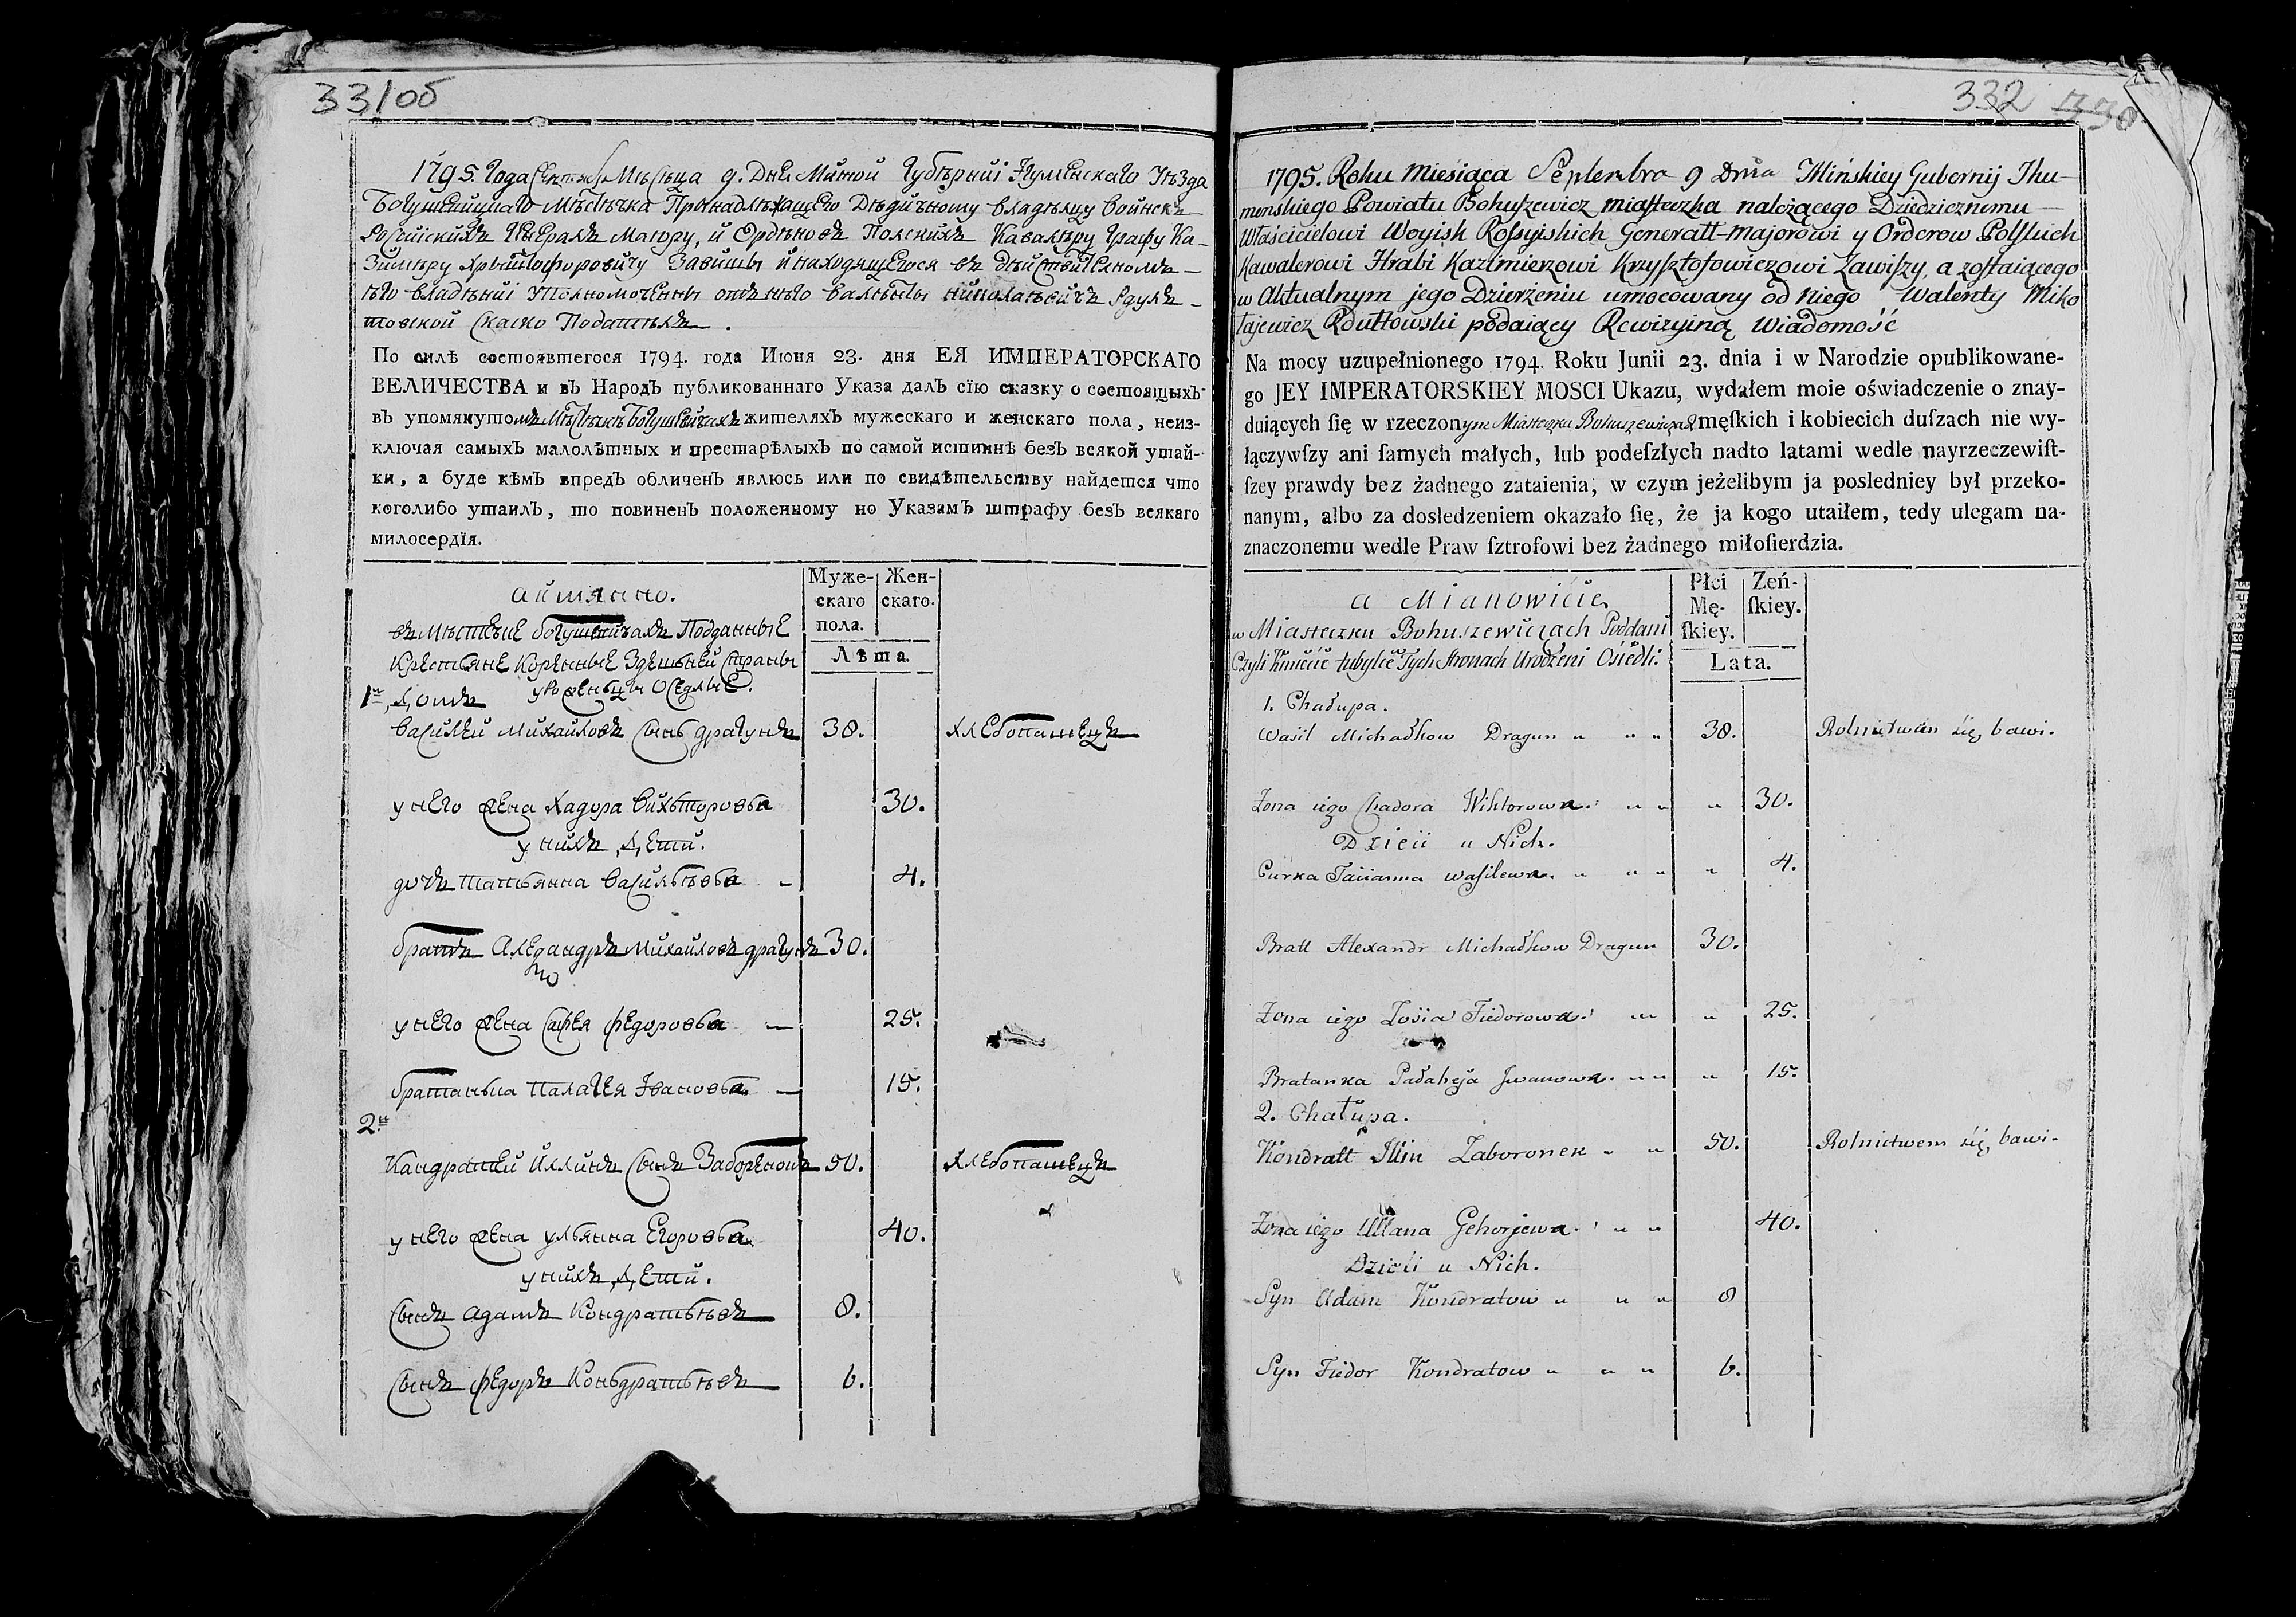 331об
1795. Года Сентяб. Мѣсѣца 9. Дня Минской Губѣрнiи Iгуменскаго Уѣзда
Богушевицкаго Мѣстѣчка Принадлѣжащего Дѣдичному владѣлцу Воинскъ
Росийскихъ Генералъ Маiору, и Ордѣновъ Полскихъ Кавалѣру Графу Ка-
зимѣру Хрыштофоровичу Завишы и находящегося въ дѣйствителномъ
ѣго владѣнiи Уполномоченны отъ нѣго Валѣнты Николаѣвичъ Рдулъ-
товской Скаско Податѣль.
По силѣ состоявшегося 1794. года Июня 23. дня ЕЯ ИМПЕРАТОРСКАГО
ВЕЛИЧЕСТВА и въ Народъ публикованнаго Указа далъ сїю сказку о состоящыхъ
въ упомянутомъ Мѣстѣчкѣ Богушевичахъ жителяхъ мужескаго и женскаго пола, неиз-
ключая самыхъ малолѣтныхъ и престарѣлыхъ по самой истиннѣ безъ всякой утай-
ки, а буде кѣмъ впредъ обличенъ явлюсь или по свидѣтельству найдется что
коголибо утаилъ, то повиненъ положенному по Указамъ штрафу безъ всякаго
милосердїя.
а имянно.
Муже-скаго пола. Жен-скаго.
Лѣта.
въ Мѣстечке Богушевичахъ Подданные
Крестьяне Коренные Здешней Страны
уроженцы Оседлые.
1й Домъ
Василей Михайловъ Сынъ Драгунъ 38. Хлебопашецъ
у него жена Хадора Викторовна 30.
у нихъ Дети.
дочь Татьянна Васильѣвна 4.
братъ Алезандръ Михайловъ драгунъ 30.
у него жена Сафея Федоровна 25.
братанька Палагея Iвановна 15.
2й
Кандратей Иллинъ Сынъ Заборенокъ 50. Хлебопашецъ
у него жена Ульянна Егоровна 40.
у нихъ Дети.
Сынъ Адамъ Кондратьѣвъ 8.
Сынъ Федоръ Коньдратьѣвъ 6.
332 330
1795. Roku Miesiąca Septembra 9 Dnia Mińskiey Gubernij Ihu-
menskiego Powiatu Bohuszewicz miasteczka nalezącego Dziedzicznemu
Właścicielowi Woyisk Rossyiskich Generałł-majorowi y Orderow Polskich
Kawalerowi Hrabi Kazimierzowi Krzysztofowiczowi Zawiszy, a zostaiącego
w Aktualnym jego Dzierżeniu umocowany od Niego Walenty Miko
łajewicz Rdułtowski podaiący Rewizyiną Wiadomość
Na mocy uzupełnionego 1794. Roku Junii 23. dnia i w Narodzie opublikowane-
go JEY IMPERATORSKIEY MOSCI Ukazu, wydałem moie oświadczenie o znay-
duiących ſię w rzeczonym Miasteczku Bohuszewiczach męſkich i kobiecich duſzach nie wy-
łączywſzy ani ſamych małych, lub podeſzłych nadto latami wedle nayrzeczewiſt-
ſzey prawdy bez żadnego zataienia, w czym jeżelibym ja posledniey był przeko-
nanym, albo za dosledzeniem okazało ſię, że ja kogo utaiłem, tedy ulegam na-
znaczonemu wedle Praw ſztrofowi bez żadnego miłoſierdzia.
a Mianowicie
Płci Mę-ſkiey. Zeń-ſkiey.
Lata.
w Miasteczku Bohuszewiczach Poddani
Czyli Kmiecie tubylce w Tych Stronach Urodzeni Osiedli.
1. Chałupa.
Wasil Michałkow Dragun 38. Rolnictwem się bawi.
Zona iego Chadora Wiktorowa. 30.
Dzieci u Nich.
Curka Tacianna Wasilewa. 4.
Bratt Alexandr Michałkow Dragun 30.
Zona iego Zosia Fiedorowa. 25.
Bratanka Pałaheja Jwanowa. 15.
2. Chałupa.
Kondratt Illin Zaboronek 50. Rolnictwem się bawi.
Zona iego Ullana Gehorjewa. 40.
Dzieci u Nich.
Syn Adam Kondratow 8
Syn Fiedor Kondratow 6.